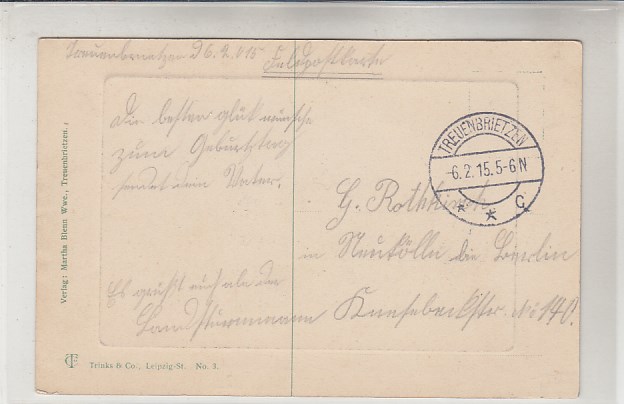 Treuenbrietzen d 6.2.15
Feldpostkarte
Die besten glük wünsche
zum Geburtstag
sendet dein Vater.
Es grüßt euch alle der
Landsturmmann
TREUENBRIETZEN
-6.2.15.5-6N
* * c
G.
in Neukölln bei Berlin
Knesebeckstr. No 140.
Verlag: Martha Blenn Wwe., Treuenbrietzen.
Trinks & Co., Leipzig-St. No. 3.